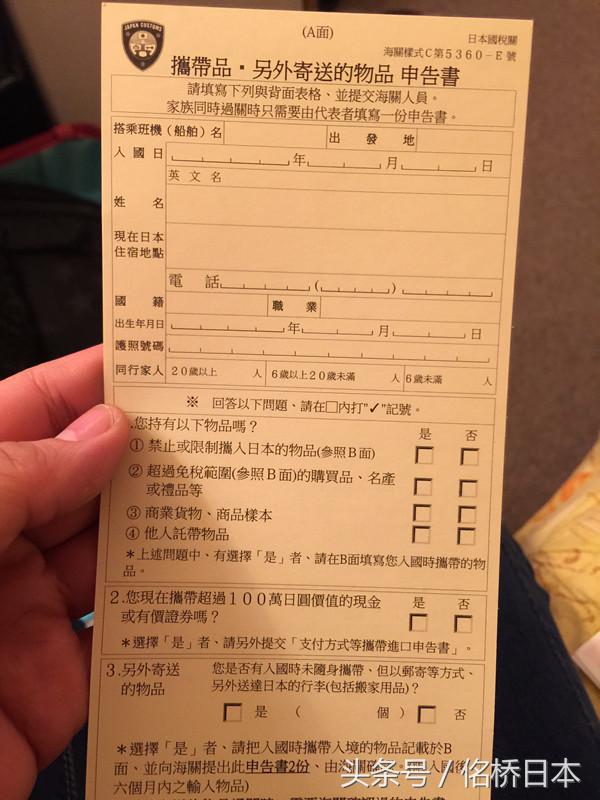 JAPAN CUSTOMS
(A面)
日本國稅關
海關樣式C第5360-E號
攜帶品・另外寄送的物品 申告書
請填寫下列與背面表格、並提交海關人員。
家族同時過關時只需要由代表者填寫一份申告書。
搭乘班機(船舶)名 出發地
入國日 年 月 日
英文名
姓 名
現在日本
住宿地點
電 話 ( )
國 籍 職 業
出生年月日 年 月 日
護照號碼
同行家人 20歲以上 人 6歲以上20歲未滿 人 6歲未滿 人
※ 回答以下問題、請在□內打"✓"記號。
.您持有以下物品嗎? 是 否
① 禁止或限制攜入日本的物品(參照B面)
② 超過免稅範圍(參照B面)的購買品、名產
或禮品等
③ 商業貨物、商品樣本
④ 他人託帶物品
*上述問題中、有選擇「是」者、請在B面填寫您入國時攜帶的物
品。
2.您現在攜帶超過100萬日圓價值的現金 是 否
或有價證券嗎?
*選擇「是」者、請另外提交「支付方式等攜帶進口申告書」。
3.另外寄送 您是否有入國時未隨身攜帶、但以郵寄等方式、
的物品 另外送達日本的行李(包括搬家用品)?
是 ( 個) 否
*選擇「是」者、請把入國時攜帶入境的物品記載於B
面、並向海關提出此申告書2份、由海關確
六個月內之輸入物品)
头条号/佲桥日本